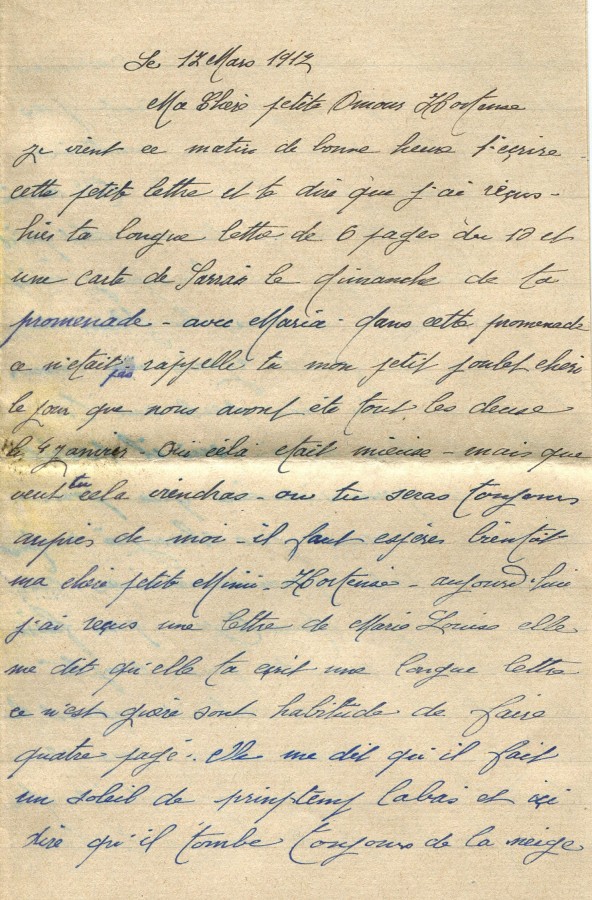 Le 17 Mars 1917
Ma Cher petite Amour Hortense
je vient ce matin de bonne heure t'ecrire
cette petite lettre et te dire que j'ai reçus
hier ta longue lettre de 6 pages du 12 et
une carte de Sarras le dimanche de ta
promenade - avec Maria - dans cette promenade
ce n'était pas rappelle tu mon petit poulet cheri
le jour que nous avont été tout les deuse
le 4 janvier Oui cela était mieuse - mais que
veut tu cela viendras - ou tu seras toujours
auprès de moi - il faut espérer bientôt
ma cheri petite Mimi - Hortense - aujourd'hui
j'ai reçus une lettre de Marie Louise elle
me dit qu'elle ta ecrit une longue lettre
ce n'est guère sont habitude de faire
quatre pagé. elle me dit qu'il fait
un soleil de printemp labas et içi
dire qu'il tombe toujours de la neige